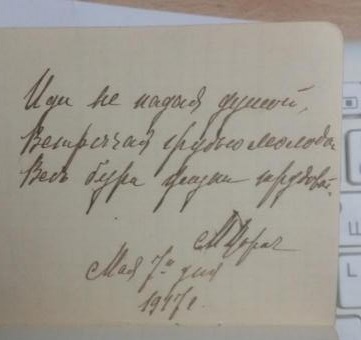 Иди не падая душой,
Встречая грудью молодой
Весь бурю жизни трудовой.
М
Мая 7го дня
1917 г.